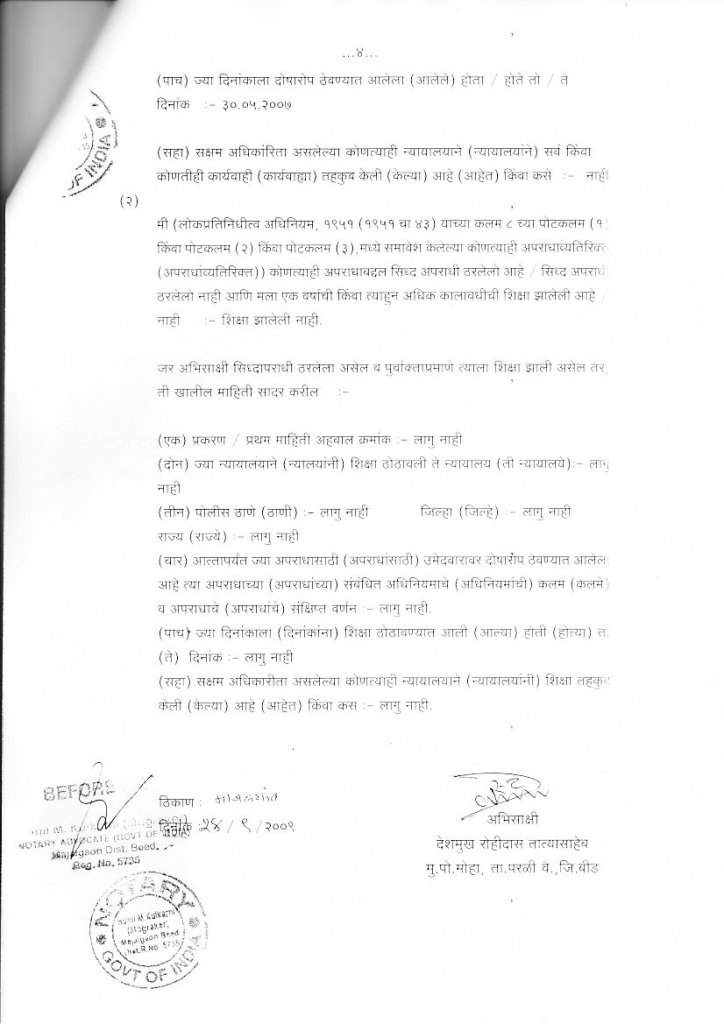 ...४...
(पाच) ज्या दिनांकाला दोषारोप ठेवण्यात आलेला (आलेले) होता / होते तो / ते
दिनांक :- ३०.०५.२००७
(सहा) सक्षम अधिकारिता असलेल्या कोणत्याही न्यायालयाने (न्यायालयांने) सर्व किंवा
कोणतीही कार्यवाही (कार्यवाह्या) तहकुब केली (केल्या) आहे (आहेत) किंवा कसे :- नाही
(२)
मी (लोकप्रतिनिधीत्व अधिनियम, १९५१ (१९५१ चा ४३) याच्या कलम ८ च्या पोटकलम (१)
किंवा पोटकलम (२) किंवा पोटकलम (३),मध्ये समावेश केलेल्या कोणत्याही अपराधाव्यतिरिक्त
(अपराधांव्यतिरिक्त)) कोणत्याही अपराधाबद्दल सिध्द अपराधी ठरलेलो आहे / सिध्द अपराधी
ठरलेलो नाही आणि मला एक वर्षाची किंवा त्याहुन अधिक कालावधीची शिक्षा झालेली आहे /
नाही :- शिक्षा झालेली नाही.
जर अभिसाक्षी सिध्दापराधी ठरलेला असेल व पुर्वाक्ताप्रमाणे त्याला शिक्षा झाली असेल तर,
ती खालील माहिती सादर करील :-
(एक) प्रकरण / प्रथम माहिती अहवाल क्रमांक :- लागु नाही
(दोन) ज्या न्यायालयाने (न्यालयांनी) शिक्षा ठोठावली ते न्यायालय (ती न्यायालये):- लागु
नाही
(तीन) पोलीस ठाणे (ठाणी) :- लागु नाही जिल्हा (जिल्हे) :- लागु नाही
राज्य (राज्ये) :- लागु नाही
(चार) आत्तापर्यंत ज्या अपराधासाठी (अपराधांसाठी) उमेदवारावर दोषारोप ठेवण्यात आलेला
आहे त्या अपराधाच्या (अपराधांच्या) संबंधित अधिनियमाचे (अधिनियमांची) कलम (कलमे)
व अपराधाचे (अपराधांचे) संक्षिप्त वर्णन :- लागु नाही.
(पाच) ज्या दिनांकाला (दिनांकांना) शिक्षा ठोठावण्यात आली (आल्या) होती (होत्या) त
(ते) दिनांक :- लागु नाही
(सहा) सक्षम अधिकारीता असलेल्या कोणत्याही न्यायालयाने (न्यायालयांनी) शिक्षा तहकुब
केली (केल्या) आहे (आहेत) किंवा कस :- लागु नाही.
BEFORE
ठिकाण : माजलगांव
दिनांक : २४ / ९ / २००९
NOTARY ADVOCATE (GOVT OF INDIA)
Majalgaon Dist. Beed.
Reg. No. 5735
अभिसाक्षी
देशमुख रोहीदास तात्यासाहेब
मु.पो.मोहा, ता.परळी वै.,जि.बीड
NOTARY
Sunil M. Kulkarni
(Mograkar)
Majalgaon Beed
R. No. 5735
GOVT OF INDIA
OF INDIA